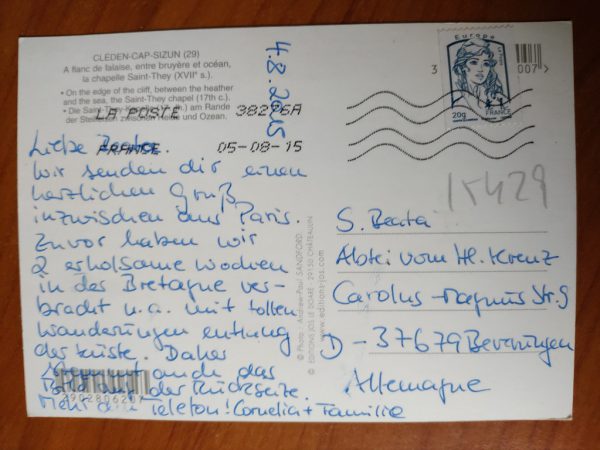 CLEDEN-CAP-SIZUN (29)
A flanc de falaise, entre bruyère et océan,
la chapelle Saint-They (XVIIᵉ s.).
• On the edge of the cliff, between the heather
and the sea, the Saint-They chapel (17th c.).
• Die Saint-They am Rande
der zwischen und Ozean.
4.8.2015
LA POSTE 38296A
FRANCE 05-08-15
Europe
20g
FRANCE
3 007>
15429
Liebe Beata.
Wir senden dir einen
herzlichen Gruß
inzwischen aus Paris.
Zuvor haben wir
2 erholsame Wochen
in der Bretagne ver-
bracht u.a. mit tollen
Wanderungen entlang
der Küste. Daher
stammt auch das
Bild auf der Rückseite.
Mehr am Telefon! Cornelia + Familie
S. Beata
Abtei vom Hl. Kreuz
Carolus-Magnus Str. 9
D - 37679 Beverungen
Allemagne
© Photo : Andrew-Paul SANDFORD.
© EDITIONS JOS LE DOARÉ - 29150 CHÂTEAULIN
www.editionsjos.com